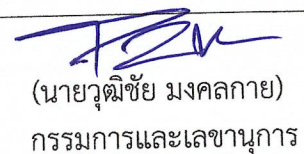 (นายวุฒิชัย มงคลกาย)
กรรมการและเลขานุการ